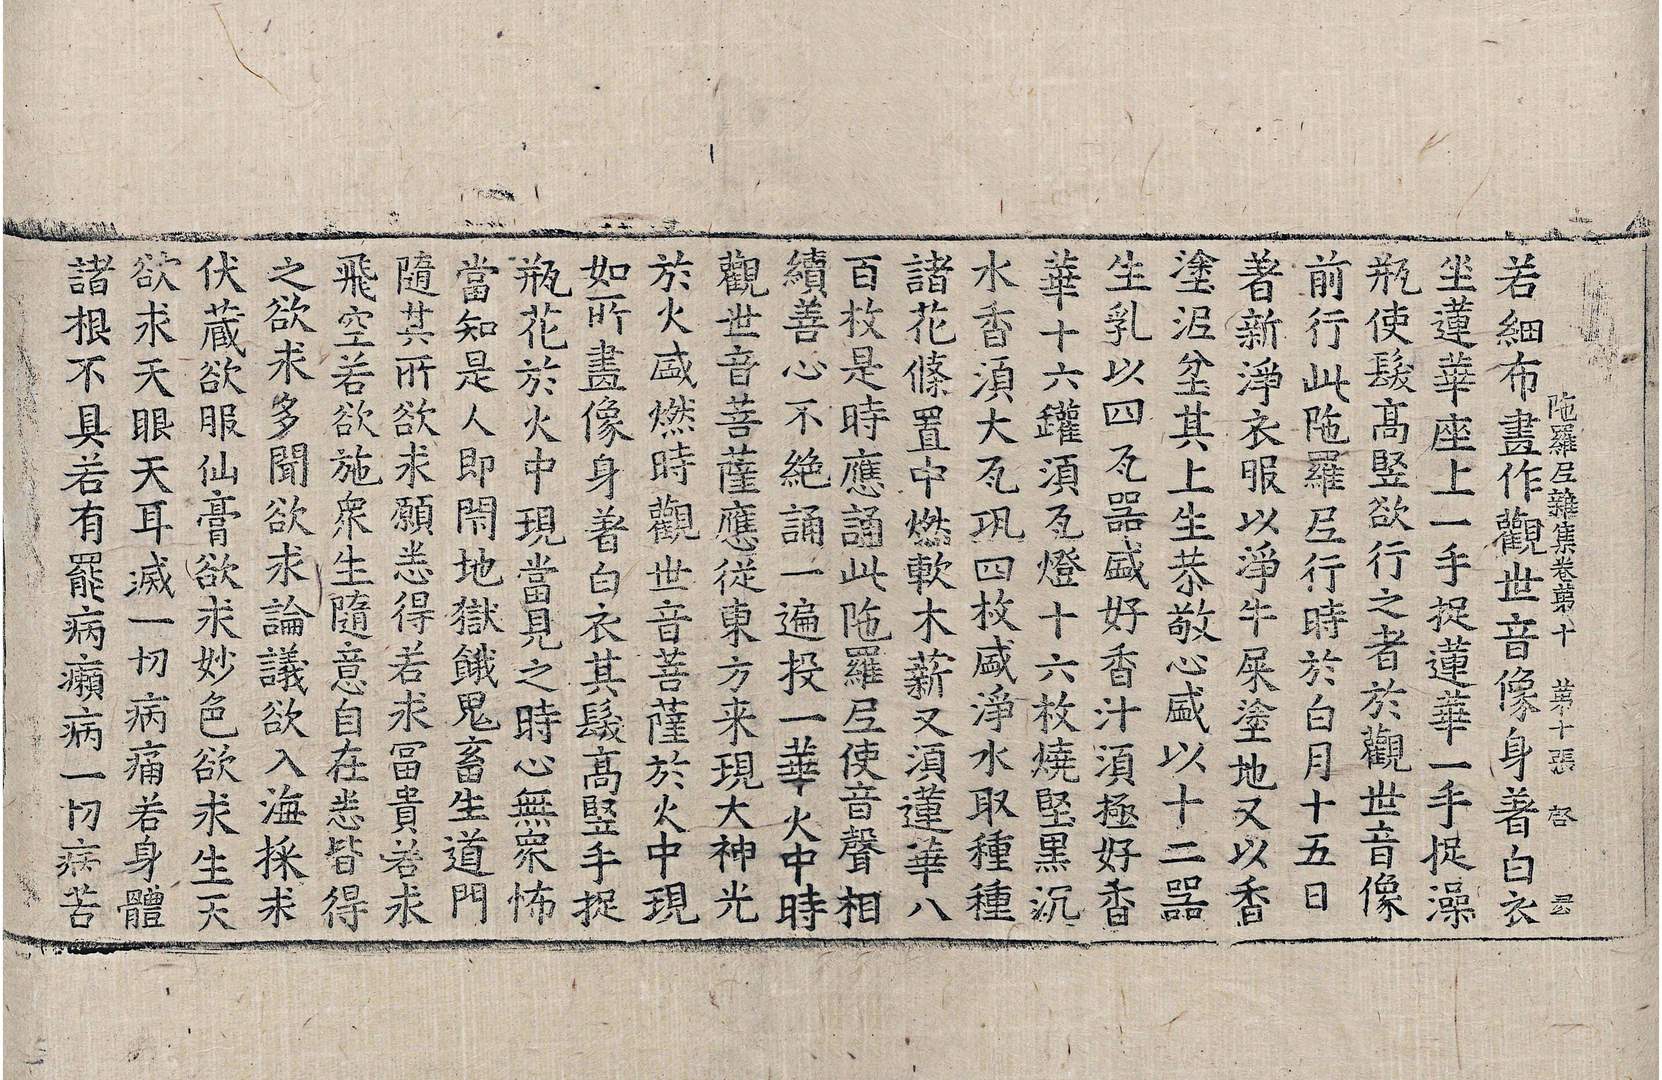 陁羅𡰱雜集卷第十　第十張　啓　云
若細布畫作觀世音像身著白衣
坐蓮華座上一手捉蓮華一手捉澡
瓶使髮髙竪欲行之者於觀世音像
前行此陁羅𡰱行時於白月十五日
著新淨衣服以淨牛屎塗地又以香
塗泥坌其上生恭敬心盛以十二器
生乳以四瓦器盛好香汁湏極好香
華十六罐湏瓦燈十六枚燒堅黒沉
水香湏大瓦瓨四枚盛淨水取種種
諸花條置中燃軟木薪又湏蓮華八
百枚是時應誦此陁羅𡰱使音聲相
續善心不絶誦一遍投一華火中時
觀世音菩薩應從東方来現大神光
於火盛燃時觀世音菩薩於火中現
如所畫像身著白衣其髮髙竪手捉
瓶花於火中現當見之時心無衆怖
當知是人即閇地獄餓鬼畜生道門
隨其所欲求願悉得若求冨貴若求
飛空若欲施衆生隨意自在悉皆得
之欲求多聞欲求論議欲入海採求
伏蔵欲服仙膏欲求妙色欲求生天
欲求天眼天耳滅一切病痛若身體
諸根不具若有罷病癩病一切病苦